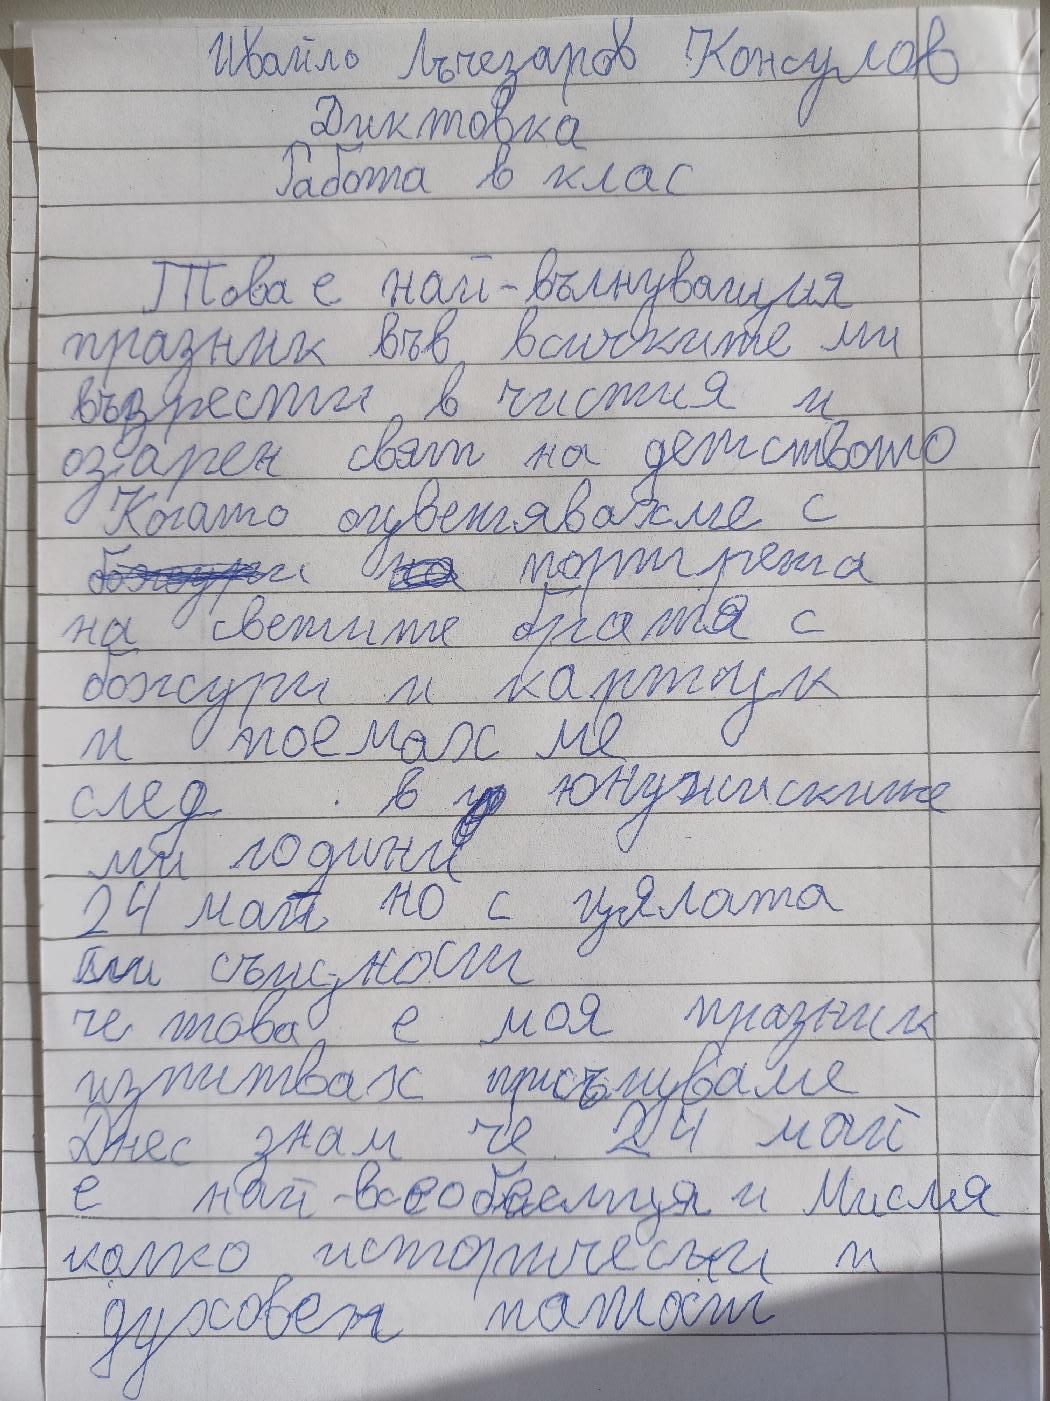 Ивайло Лъчезаров Консулов
Диктовка
Работа в клас
Това е най-вълнуващия
празник във всичките ми
възрести в чистия и
озарен свят на детството
Когато оцветявахме с
портрета
на светите братя с
божури и картоук
и поемахме
след в юнужиските
ми години
24 май но с цялата
ми същност
че това е моя празник
изпитвах
Днес знам че 24 май
е най-всеобаемция и Мисля
колко исторически и
духовен